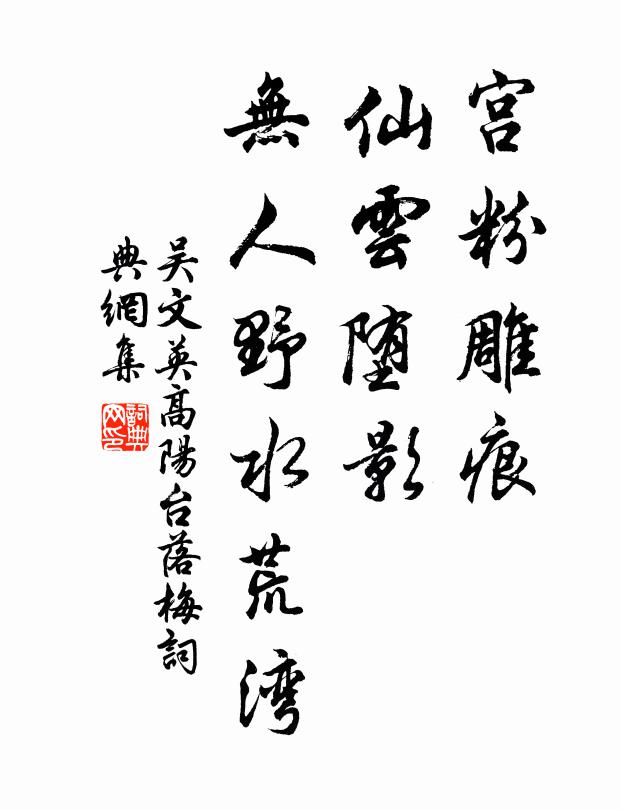 宫粉雕痕
仙雲堕影
無人野水荒湾
吴文英高陽台落梅詞
典網集
詞典网印